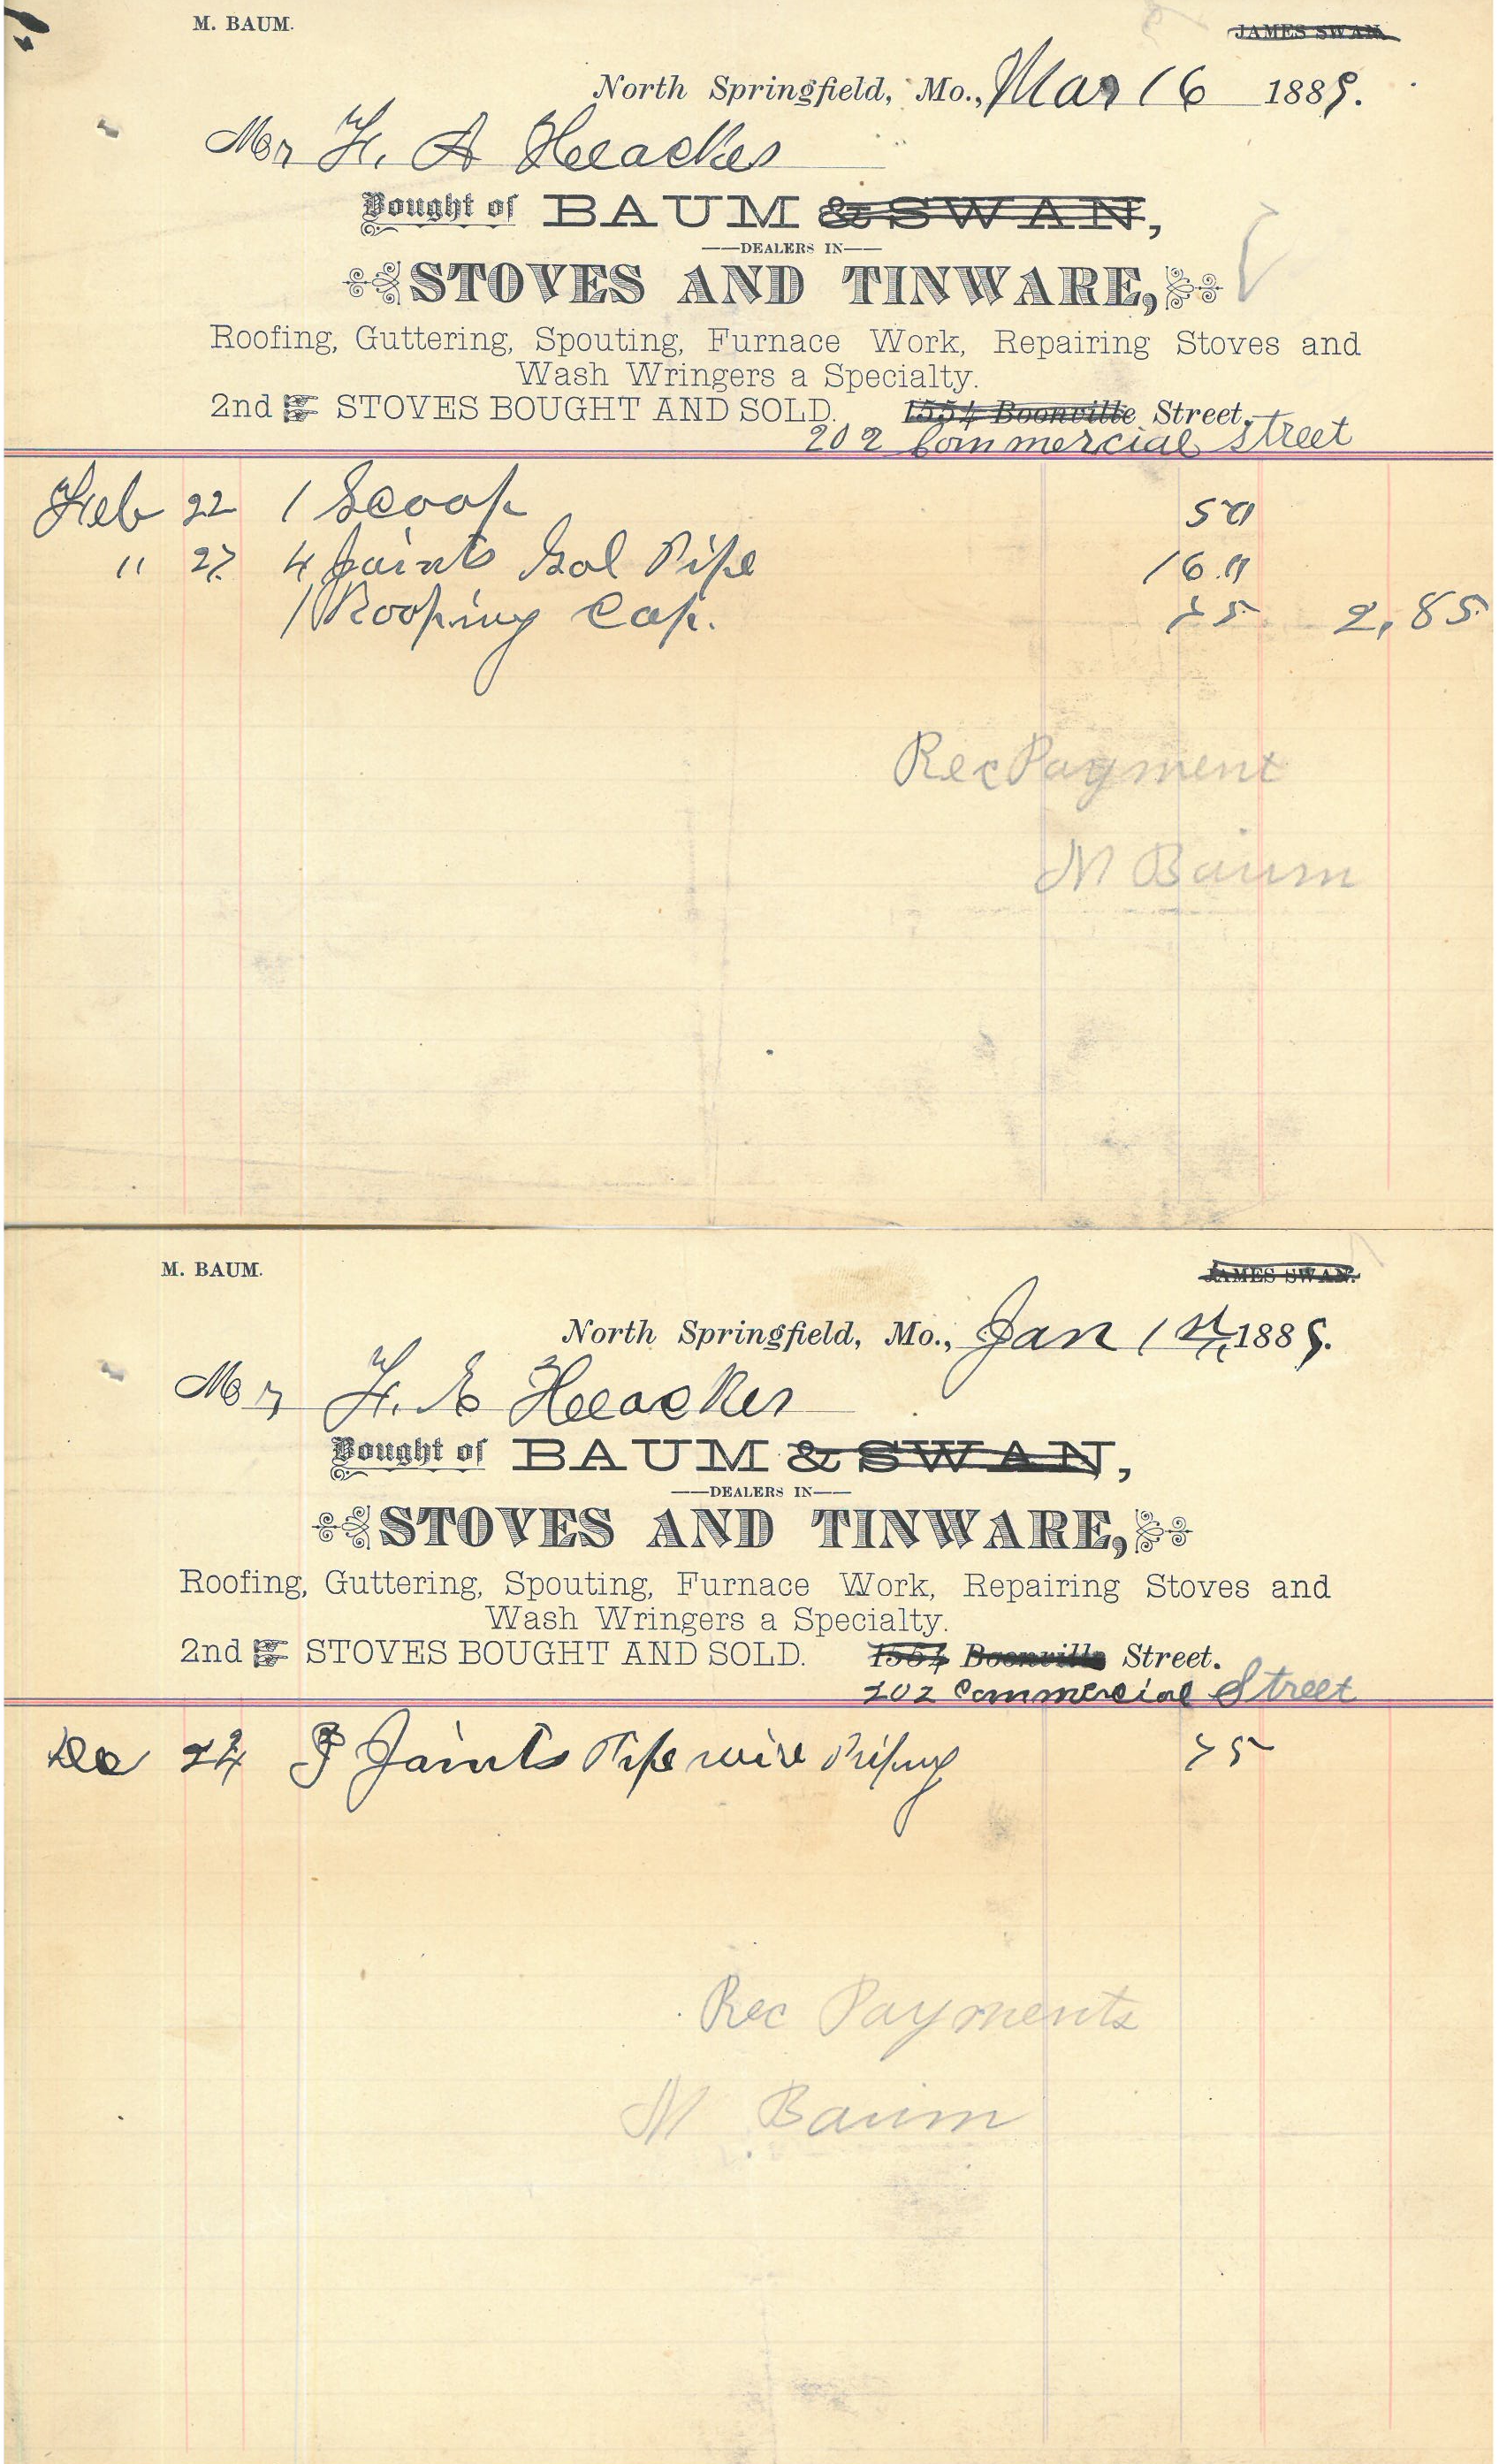 M. BAUM. JAMES SWAN.
North Springfield, Mo., Mar 16 1889.
Mr H. A Heacker
Bought of BAUM & SWAN,
DEALERS IN
STOVES AND TINWARE,
Roofing, Guttering, Spouting, Furnace Work, Repairing Stoves and
Wash Wringers a Specialty.
2nd STOVES BOUGHT AND SOLD. 1554 Boonville Street.
202 Commercial Street
Feb 22 1 Scoop 50
" 27. 4 Joints Gal Pipe 160
1 Roofing Cap. 75 2,85
Rec Payment
M Baum
M. BAUM. JAMES SWAN.
North Springfield, Mo., Jan 1st, 1889.
Mr Heacker
Bought of BAUM & SWAN,
DEALERS IN
STOVES AND TINWARE,
Roofing, Guttering, Spouting, Furnace Work, Repairing Stoves and
Wash Wringers a Specialty.
2nd STOVES BOUGHT AND SOLD. 1554 Boonville Street.
202 Commercial Street
Dec 24 Joints Pipe wire 75
Rec Payments
M Baum